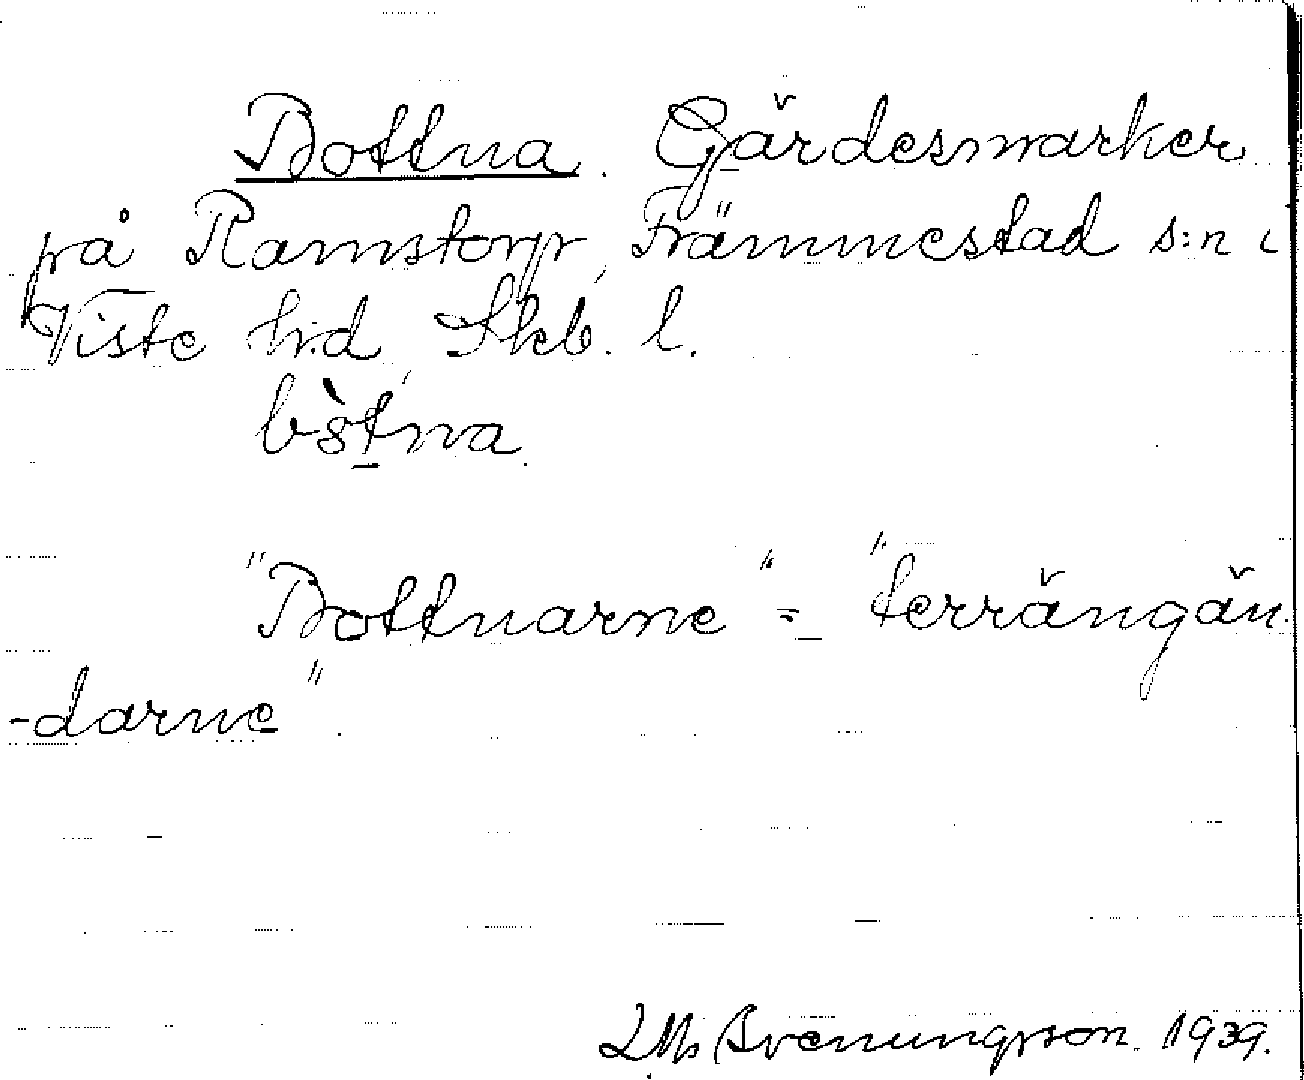 Bottna. Gärdesmarker
på Ramstorp, Främmestad s:n i
Viste hd, Skb. l.
"Bottnarne" = "terrängän
-darne"
Svenungsson. 1939.